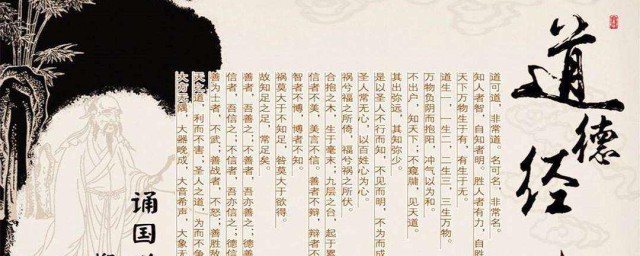 道德经
道可道，非常道。名可名，非常名。
知人者智，自知者明。胜人者有力，自胜
天下万物生于有，有生于无。
道生一，一生二，二生三，三生万物。
万物负阴而抱阳，冲气以为和。
不出户，知天下；不窥牖，见天道。
其出弥远，其知弥少。
是以圣人不行而知，不见而明，不为而成
圣人常无心，以百姓心为心。
祸兮福之所倚，福兮祸之所伏。
合抱之木，生于毫末；九层之台，起于累
信者不美，美言不信。善者不辩，辩者不
智者不博，博者不知。
祸莫大于不知足，咎莫大于欲得。
故知足之足，常足矣。
善者，吾善之；不善者，吾亦善之；德善
信者，吾信之；不信者，吾亦信之；德信
善为士者，不武；善战者，不怒；善胜敌
天之道，利而不害；圣人之道，为而不争
大方无隅，大器晚成，大音希声，大象无
诵国